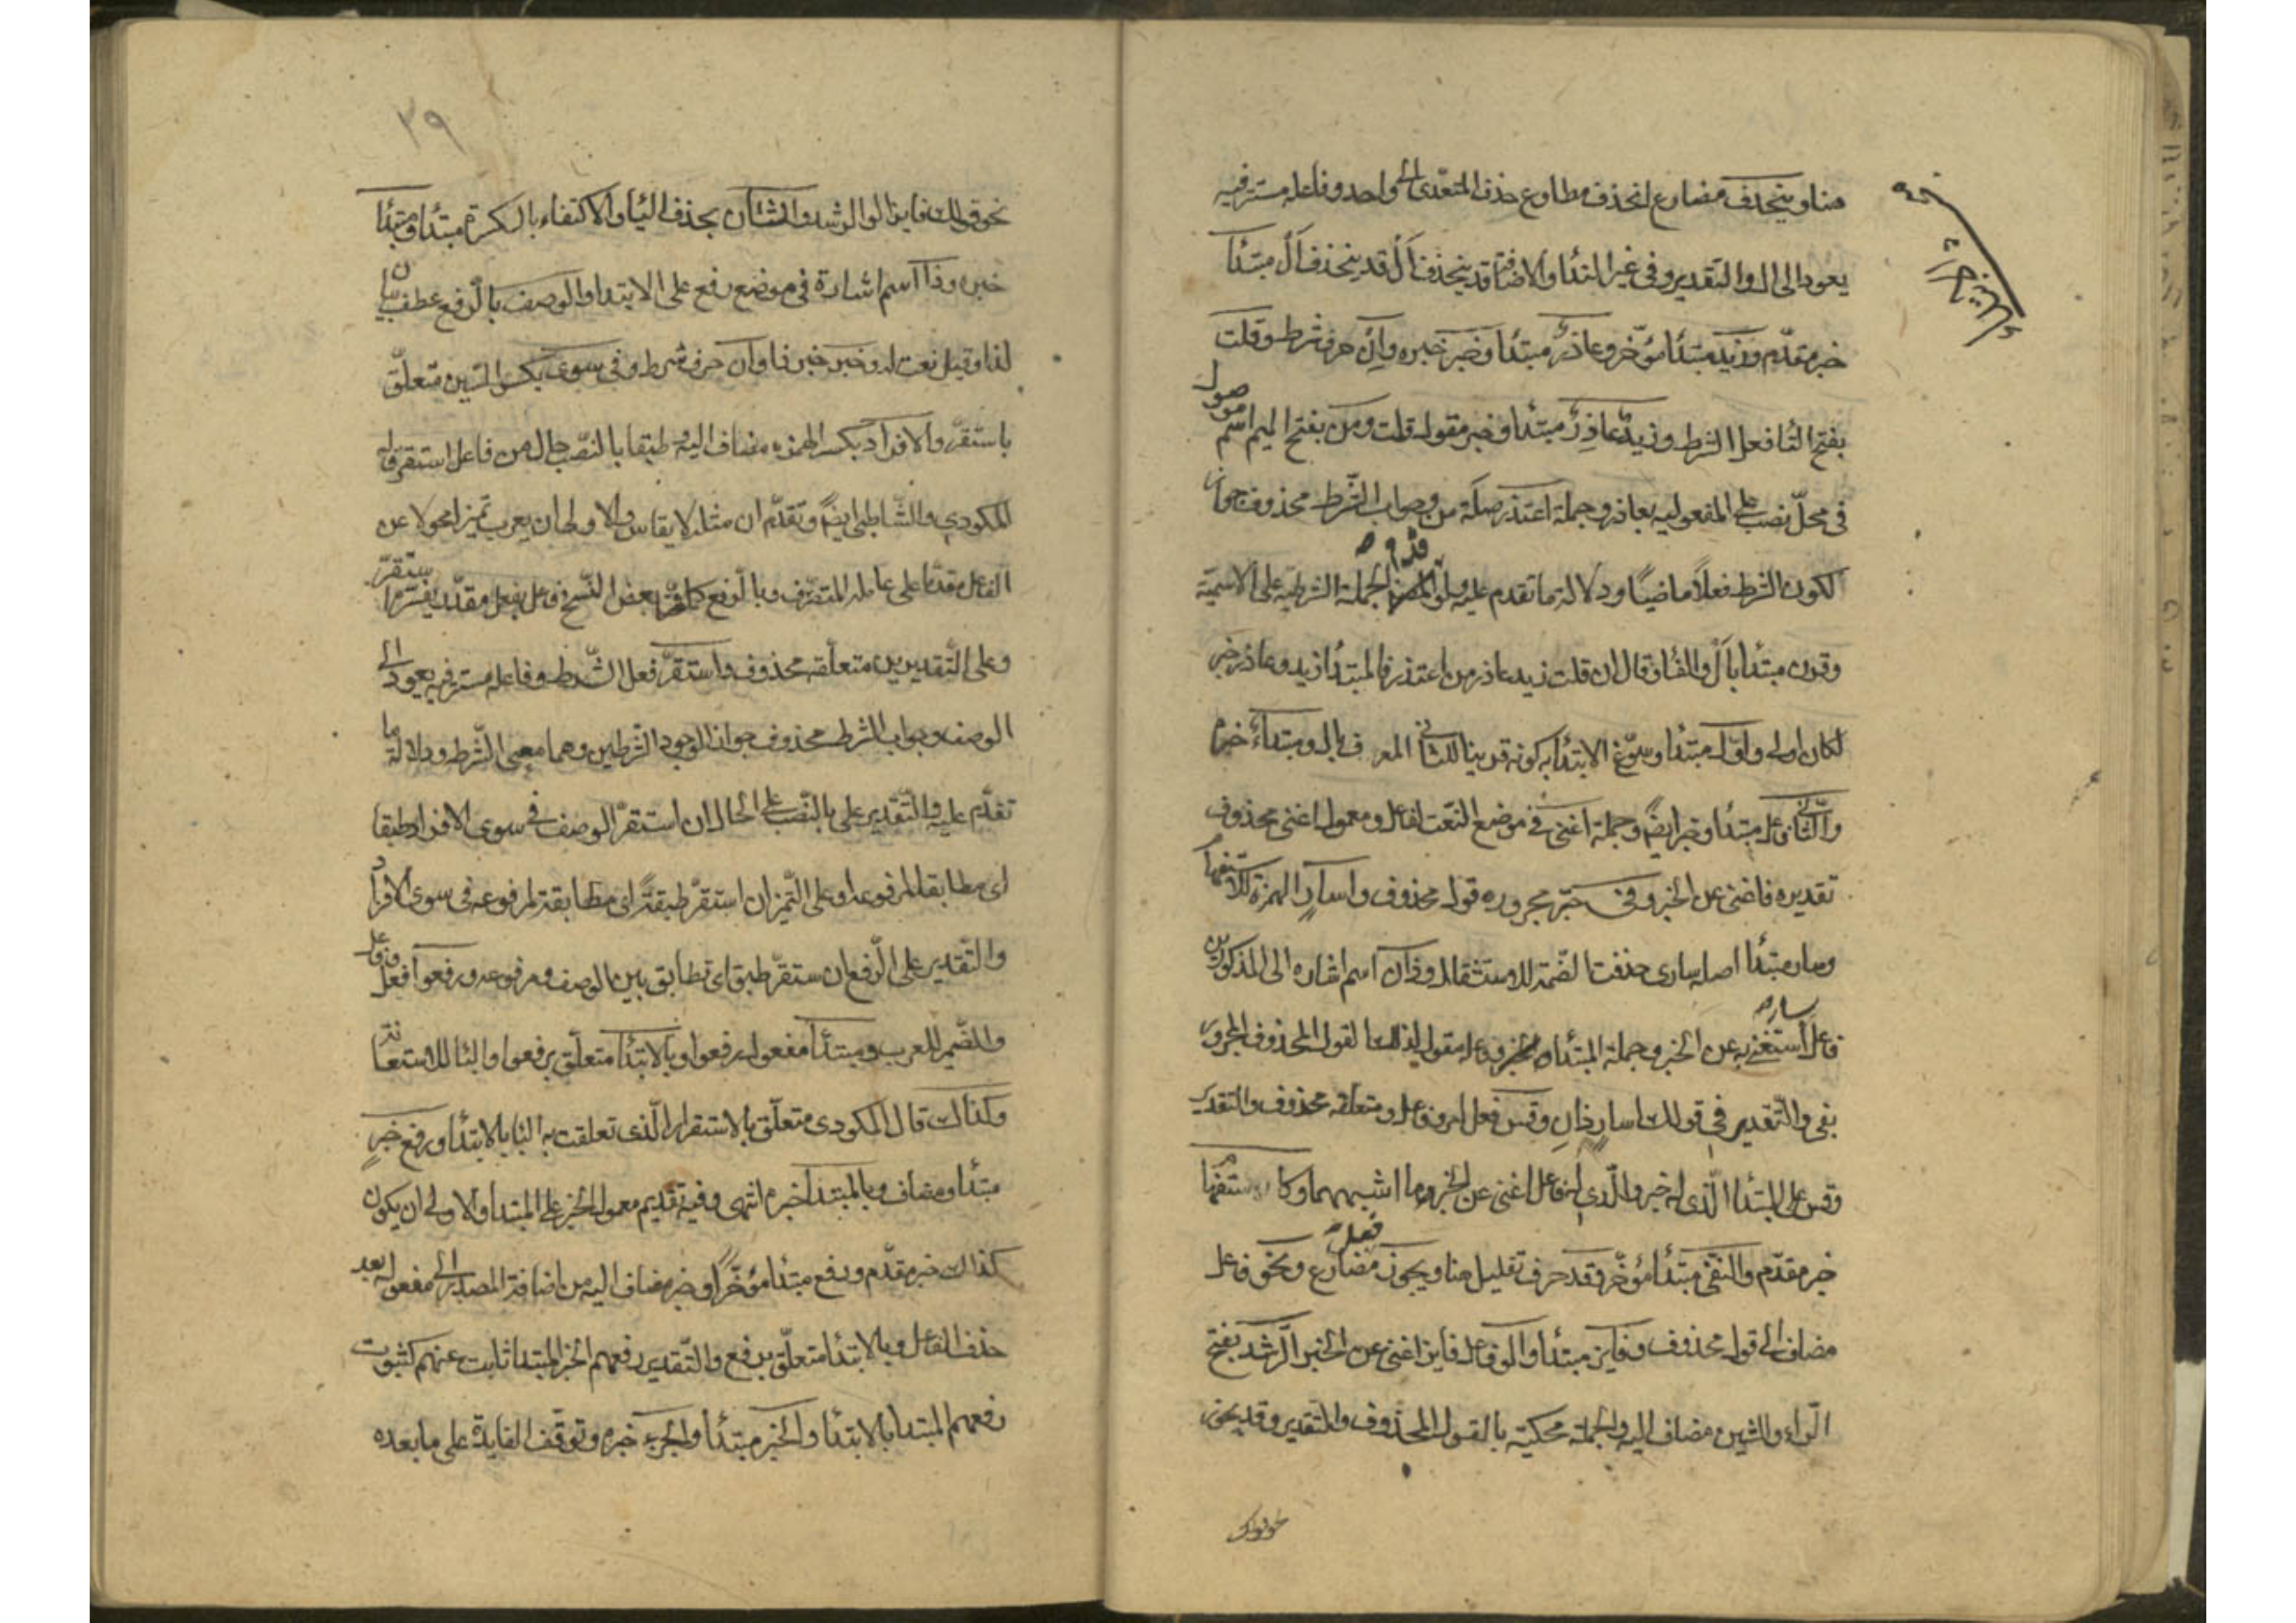 هنا وينحذف مضارع انحذف مطاوع حذف المتعدى الى واحد وفاعله مستتر فيه
يعود الى ال والتقدير وفى غير الندا والاضافة قد ينحذف أل قد ينحذف أل مبتدأ
خبر مقدم وزيد مبتدأ مؤخر وعاذر مبتدأ وخبر خبره وان حرف شرط وقلت
بفتح التا فعل الشرط وزيد عاذر مبتدأ وخبر مقول قلت ومن بفتح الميم اسم موصول
فى محل نصب على المفعولية بعاذر وجملة اعتذر صلة من وجواب الشرط محذوف جوازا
لكون الشرط فعلا ماضيا ودلالة ما تقدم عليه ولو قدم الجملة الشرطية على الاسمية
وقرن مبتدأ بأل والفا وقال ان قلت زيد عاذر من اعتذر فالمبتدأ زيد وعاذر خبر
لكان اولى واول مبتدأ وسوغ الابتدأ به كونه قرينا للثانى المعرف بال ومبتدأ خبره
والثانى فاعل مبتدأ وخبر ايضا وجملة اغنى فى موضع النعت لفاعل ومعمول اغنى محذوف
تقديره فاغنى عن الخبر وفى حرف جر مجروره قول محذوف واسار الهمزة للاستفهام
وسار مبتدأ اصله سارى حذفت الضمة للاستثقال وذان اسم اشارة الى المذكورين
فاعل سار استغنى به عن الخبر وجملة المبتدأ وفاعله مقول لذلك القول المحذوف المجرور
بفى والتقدير فى قولك اسار ذان وقس فعل امر وفاعل ومتعلقه محذوف والتقدير
وقس على المبتدأ الذى له خبر والذى له فاعل اغنى عن الخبر وما اشبههما وكاستفهام
خبر مقدم والنفى مبتدأ مؤخر وقد حرف تقليل هنا ويجوز فعل مضارع ونحو فاعل
مضاف الى قول محذوف وفايز مبتدأ واولو فاعل فايز اغنى عن الخبر الرشد بفتح
الراء والشين مضاف اليه والجملة محكية بالقول المحذوف والتقدير وقد يجوز
نحو قولك
٣٩
نحو قولك فايز اولو الرشد والثان بحذف اليا والاكتفاء بالكسرة مبتدأ ومبتدأ
خبره وذا اسم اشارة فى موضع رفع على الابتدا والوصف بالرفع عطف بيان
لذا وقيل نعت له وخبر خبر ذا وان حرف شرط وفى سوى بكسر السين متعلق
باستقر والافراد بكسر الهمزة مضاف اليه وطبقا بالنصب حال من فاعل استقر قاله
المكودى والشاطبى ايضا وتقدم ان مثله لا يقاس والاولى ان يعرب تمييزا محولا عن
الفاعل مقدما على عامله المتصرف وبالرفع كما فى بعض النسخ فاعل بفعل مقدر يفسره استقر
وعلى التقديرين متعلقه محذوف واستقر فعل الشرط وفاعله مستتر فيه يعود الى
الوصف وجواب الشرط محذوف جوازا لوجود الشرطين وهما مضى الشرط ودلالة ما
تقدم عليه والتقدير على النصب على الحال ان استقر الوصف فى سوى الافراد طبقا
اى مطابقا لمرفوعه وعلى التمييز ان استقر طبقة اى مطابقة لمرفوعه فى سوى الافراد
والتقدير على الرفع ان ستقر طبق اى تطابق بين الوصف ومرفوعه ورفعوا فعل وفاعل
والضمير للعرب ومبتدأ مفعول برفعوا وبالابتدأ متعلق برفعوا والبا للاستعانة
وكذاك قال المكودى متعلق بالاستقرار الذى تعلقت به البا بالابتدأ ورفع خبر
مبتدأ ومضاف وبالمبتدأ خبره انتهى وفيه تقديم معمول الخبر على المبتدأ والاولى ان يكون
كذاك خبر مقدم ورفع مبتدأ مؤخرا وخبر مضاف اليه من اضافة المصدر الى مفعوله بعد
حذف الفاعل وبالابتدأ متعلق برفع والتقدير رفعهم الخبر المبتدا ثابت عنهم كثبوت
رفعهم المبتدا بالابتدأ والخبر مبتدأ والجزء خبره وتوقف الفايدة على ما بعده